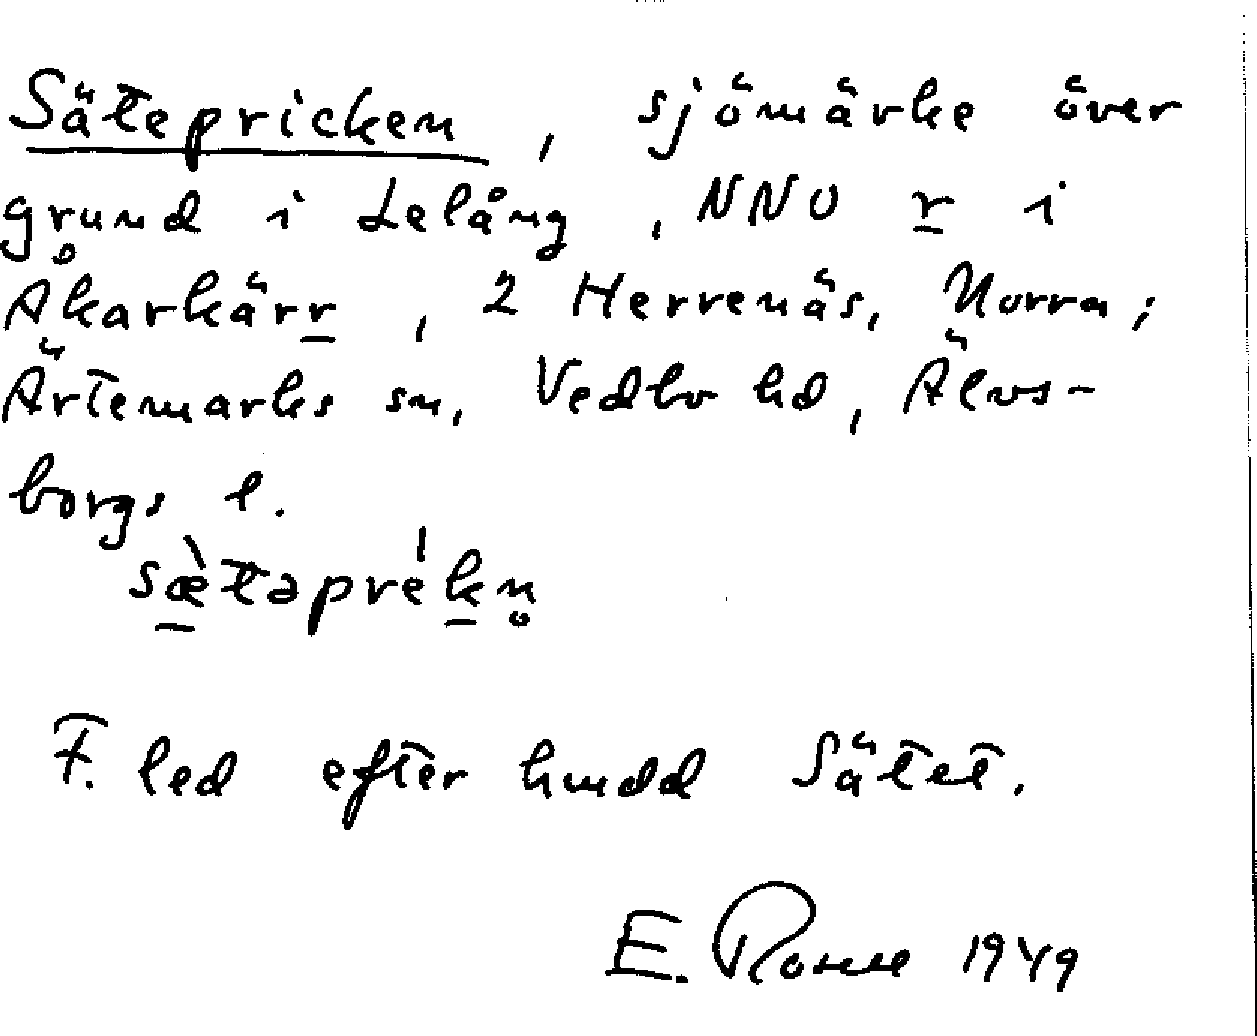 Sätepricken, sjömärke över
grund i Lelång, NNO r i
Åkarkärr, 2 Herrenäs, Norra;
Ärtemarks sn, Vedbo hd, Älvs-
borgs l.
sæ̀təpre̍kn̥
F. led efter hmdd Sätet.
E. 1949